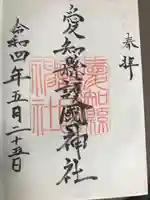 奉拝
愛知縣護國神社
令和四年五月二十五日